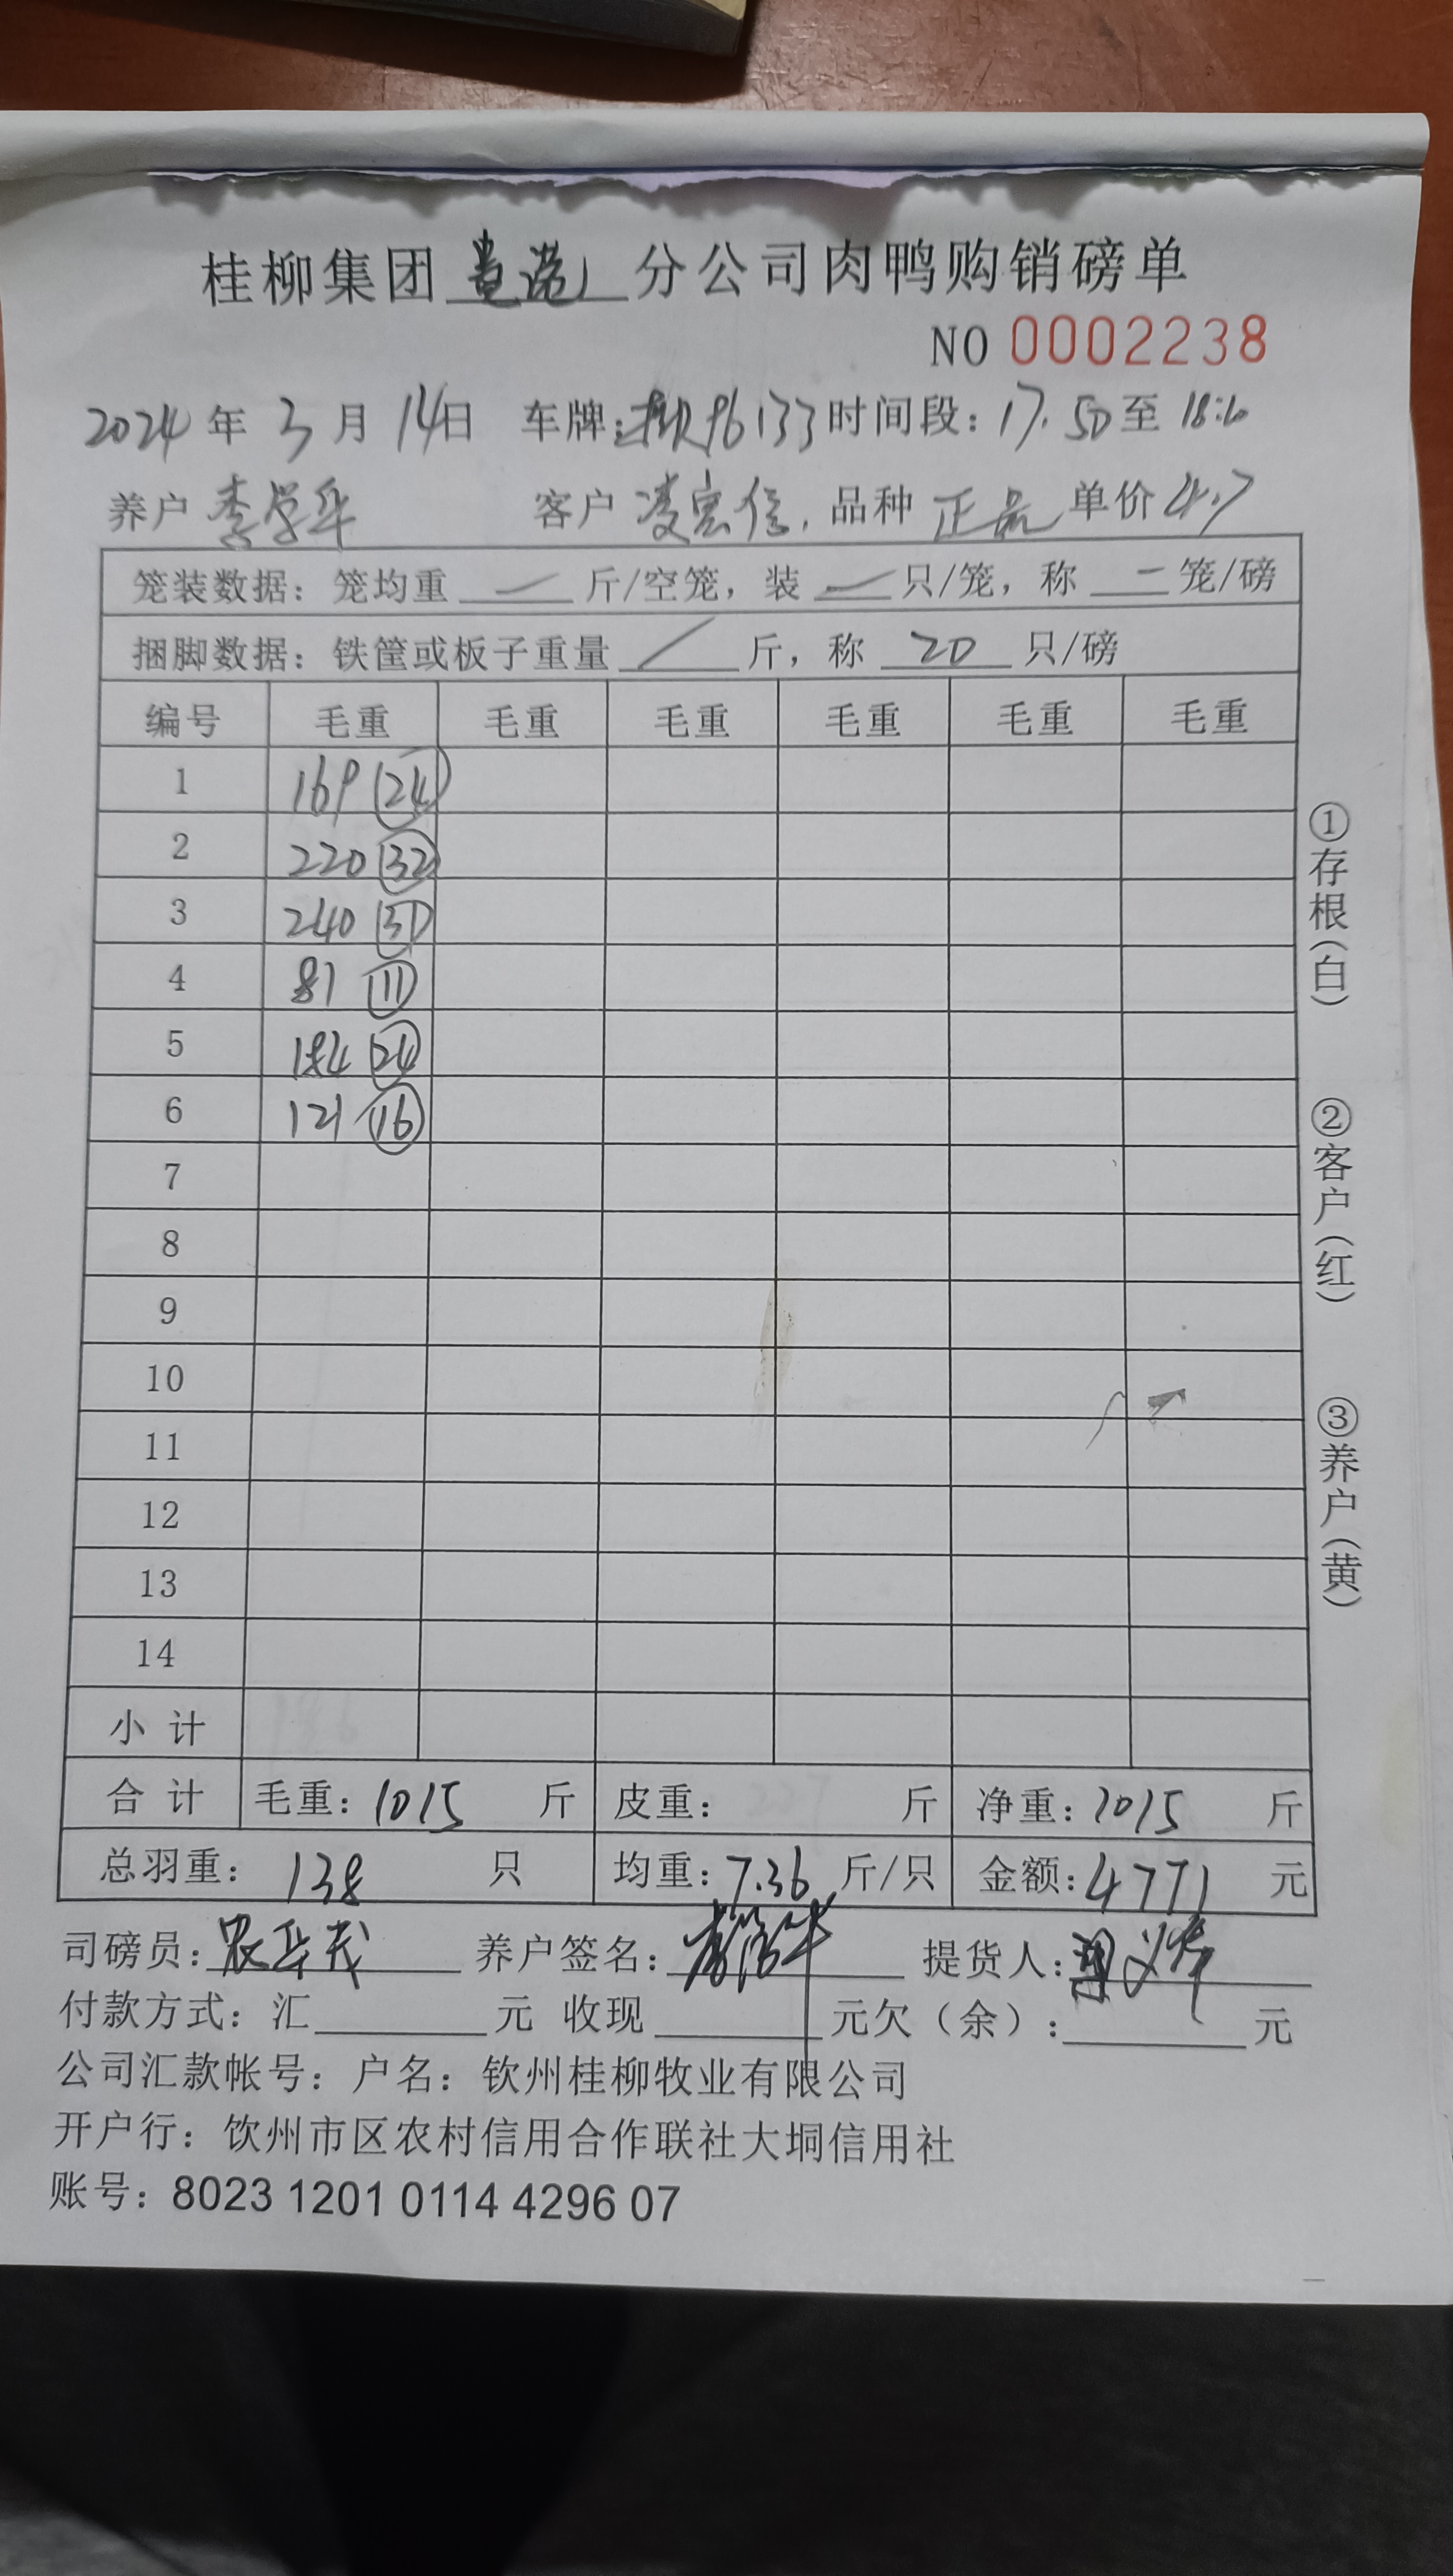 桂柳集团贵港分公司肉鸭购销磅单
NO 0002238
2024年3月14日 车牌:96133时间段:17.50至18:10
养户 李学华 客户 凌宏信, 品种 正品 单价4.7
笼装数据:笼均重 — 斤/空笼,装 — 只/笼,称 — 笼/磅
捆脚数据:铁筐或板子重量 / 斤,称 20 只/磅
编号 毛重 毛重 毛重 毛重 毛重 毛重
1 169 (24)
2 220 (32)
3 240 (31)
4 81 (11)
5 184 (24)
6 121 (16)
7
8
9
10
11
12
13
14
小计
合计 毛重:1015 斤 皮重: 斤 净重:1015 斤
总羽重:138 只 均重:7.36 斤/只 金额:4771 元
司磅员:农华茂 养户签名: 提货人:
付款方式:汇 元 收现 元欠(余): 元
公司汇款帐号:户名:钦州桂柳牧业有限公司
开户行:饮州市区农村信用合作联社大垌信用社
账号:8023 1201 0114 4296 07
①存根(白)
②客户(红)
③养户(黄)